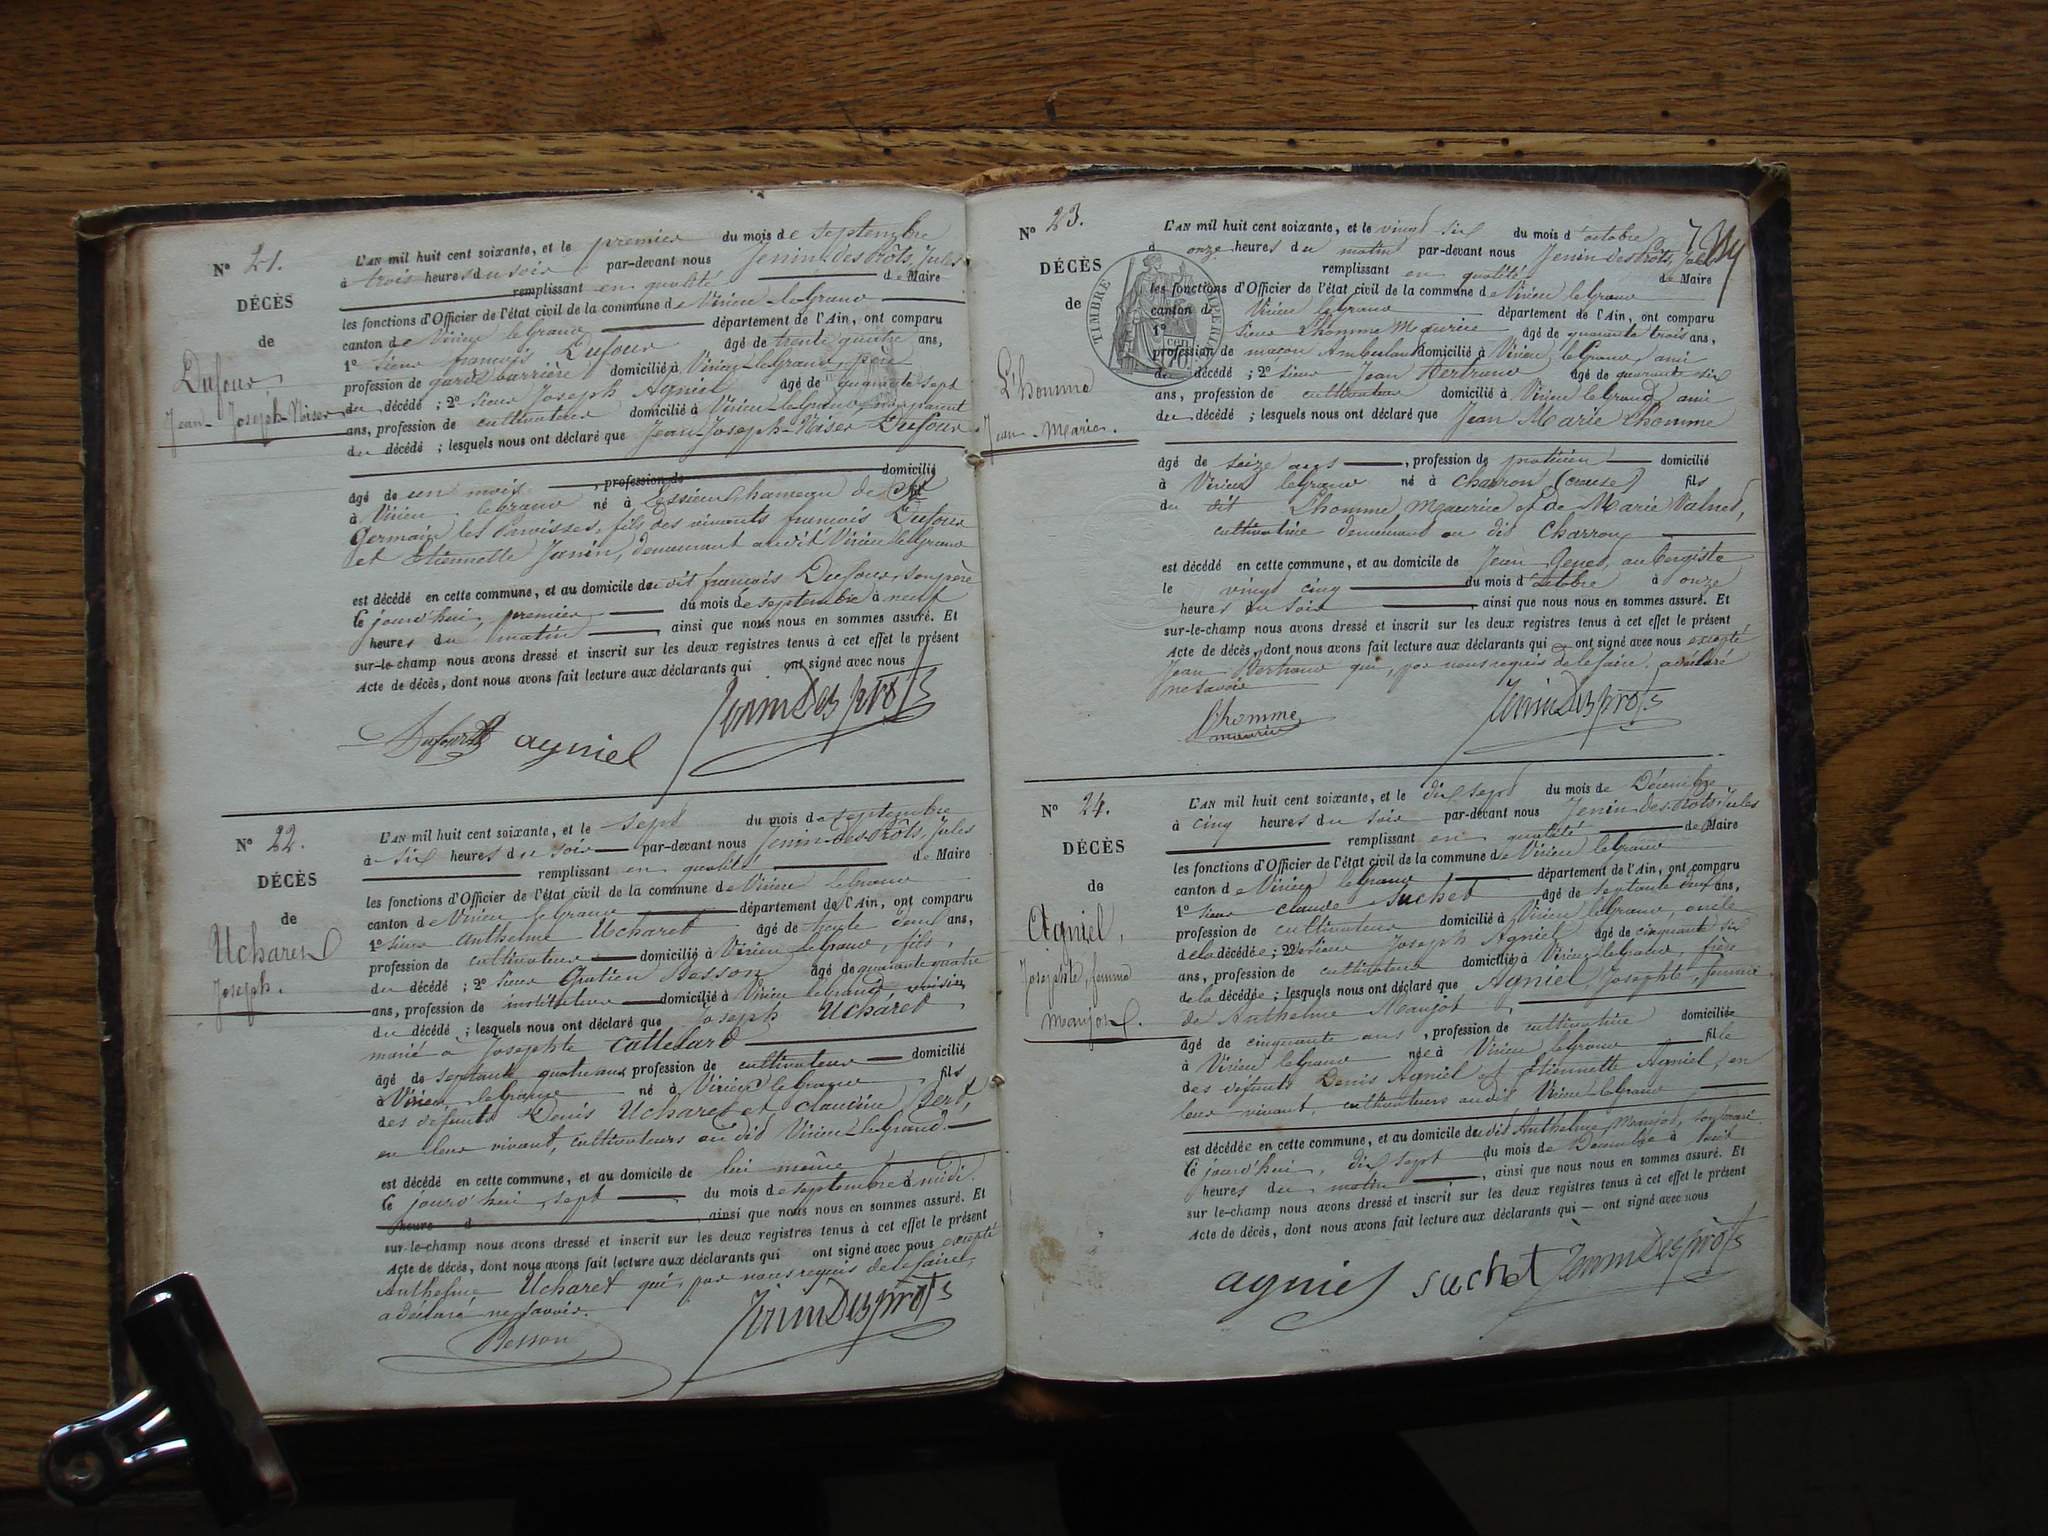 N° 21.
DÉCÈS
de
Dufour,
Jean-Joseph-Noiser
L'AN mil huit cent soixante, et le premier du mois de septembre
à trois heures du soir par-devant nous Jenin-des-Prôts, Jules
remplissant en qualité de Maire
les fonctions d'Officier de l'état civil de la commune de Virieu-le-Grand
canton de Virieu le Grand département de l'Ain, ont comparu
1° sieur françois Dufour âgé de trente quatre ans,
profession de garde barrière domicilié à Virieu-le-Grand, père
du décédé ; 2° sieur Joseph Agniel âgé de quarante sept
ans, profession de cultivateur domicilié à Virieu-le-Grand, non parent
du décédé ; lesquels nous ont déclaré que Jean-Joseph-Noiser Dufour
âgé de un mois, profession de domicilié
à Virieu le Grand né à Essieux, hameau de St
Germain les Paroisses, fils des vivants francois Dufour
et Etiennette Janin, demeurant audit Virieu le Grand
est décédé en cette commune, et au domicile du dit françois Dufour, son père
Ce jourd'hui, premier du mois de septembre à neuf
heures du matin, ainsi que nous nous en sommes assuré. Et
sur-le-champ nous avons dressé et inscrit sur les deux registres tenus à cet effet le présent
Acte de décès, dont nous avons fait lecture aux déclarants qui ont signé avec nous
Dufour agniel Jenin Des prôts
N° 22.
DÉCÈS
de
Ucharet
Joseph.
L'AN mil huit cent soixante, et le sept du mois de septembre
à six heures du soir par-devant nous Jenin-des-Prôts, Jules
remplissant en qualité de Maire
les fonctions d'Officier de l'état civil de la commune de Virieu le Grand
canton de Virieu le Grand département de l'Ain, ont comparu
1° sieur Anthelme Ucharet âgé de trente deux ans,
profession de cultivateur domicilié à Virieu le Grand, fils
du décédé ; 2° sieur Gratien Besson âgé de quarante quatre
ans, profession de instituteur domicilié à Virieu le Grand voisin
du décédé ; lesquels nous ont déclaré que Joseph Ucharet
marié à Josephte Cattelard
âgé de septante quatre ans profession de cultivateur domicilié
à Virieu le Grand né à Virieu le Grand fils
des défunts Denis Ucharet et Claudine Bert,
en leur vivant, cultivateurs au dit Virieu-le-Grand.
est décédé en cette commune, et au domicile de lui même
Ce jourd'hui sept du mois de septembre à midi.
heure d, ainsi que nous nous en sommes assuré. Et
sur-le-champ nous avons dressé et inscrit sur les deux registres tenus à cet effet le présent
Acte de décès, dont nous avons fait lecture aux déclarants qui ont signé avec nous excepté
Anthelme Ucharet qui, par nous requis de le faire,
a déclaré ne savoir.
Besson Jenin Des prôts
N° 23.
DÉCÈS
de
L'homme
Jean-Marie.
TIMBRE IMPERIAL
L'AN mil huit cent soixante, et le vingt six du mois d'octobre
à onze heures du matin par-devant nous Jenin des Prôts, Jules
remplissant en qualité de Maire
les fonctions d'Officier de l'état civil de la commune de Virieu le Grand
canton de Virieu le Grand département de l'Ain, ont comparu
1° sieur Lhomme Maurice âgé de quarante trois ans,
profession de maçon Ambulant domicilié à Virieu le Grand, ami
du décédé ; 2° sieur Jean Bertrand âgé de quarante six
ans, profession de cultivateur domicilié à Virieu le Grand, ami
du décédé ; lesquels nous ont déclaré que Jean Marie Lhomme
âgé de seize ans, profession de domicilié
à Virieu le Grand né à Charron (creuse) fils
du dit Lhomme Maurice et de Marie Valnet,
cultivatrice demeurant au dit Charron
est décédé en cette commune, et au domicile de Jean Genet, aubergiste
le vingt cinq du mois d'octobre à onze
heures du soir, ainsi que nous nous en sommes assuré. Et
sur-le-champ nous avons dressé et inscrit sur les deux registres tenus à cet effet le présent
Acte de décès, dont nous avons fait lecture aux déclarants qui ont signé avec nous excepté
Jean Bertrand qui, par nous requis de le faire, a déclaré
ne savoir
Lhomme maurice Jenin Des prôts
N° 24.
DÉCÈS
de
Agniel,
Josephte, femme
Maujot.
L'AN mil huit cent soixante, et le dix sept du mois de Décembre
à cinq heures du soir par-devant nous Jenin-des-Prôts, Jules
remplissant en qualité de Maire
les fonctions d'Officier de l'état civil de la commune de Virieu le Grand
canton de Virieu le Grand département de l'Ain, ont comparu
1° sieur Claude Suchet âgé de septante deux ans,
profession de cultivateur domicilié à Virieu le Grand, oncle
de la décédée ; 2° sieur Joseph Agniel âgé de cinquante six
ans, profession de cultivateur domicilié à Virieu-le-Grand, frère
de la décédée ; lesquels nous ont déclaré que Agniel, Josephte, femme
de Anthelme Maujot
âgé de cinquante ans, profession de cultivatrice domiciliée
à Virieu le Grand née à Virieu le Grand fille
des défunts Denis Agniel et Etiennette Agniel, en
leur vivant, cultivateurs audit Virieu-le-Grand
est décédée en cette commune, et au domicile du dit Anthelme Maujot, son mari
Ce jourd'hui, dix sept du mois de Décembre à huit
heures du matin, ainsi que nous nous en sommes assuré. Et
sur le-champ nous avons dressé et inscrit sur les deux registres tenus à cet effet le présent
Acte de décès, dont nous avons fait lecture aux déclarants qui — ont signé avec nous
agniel suchet Jenin Des prôts